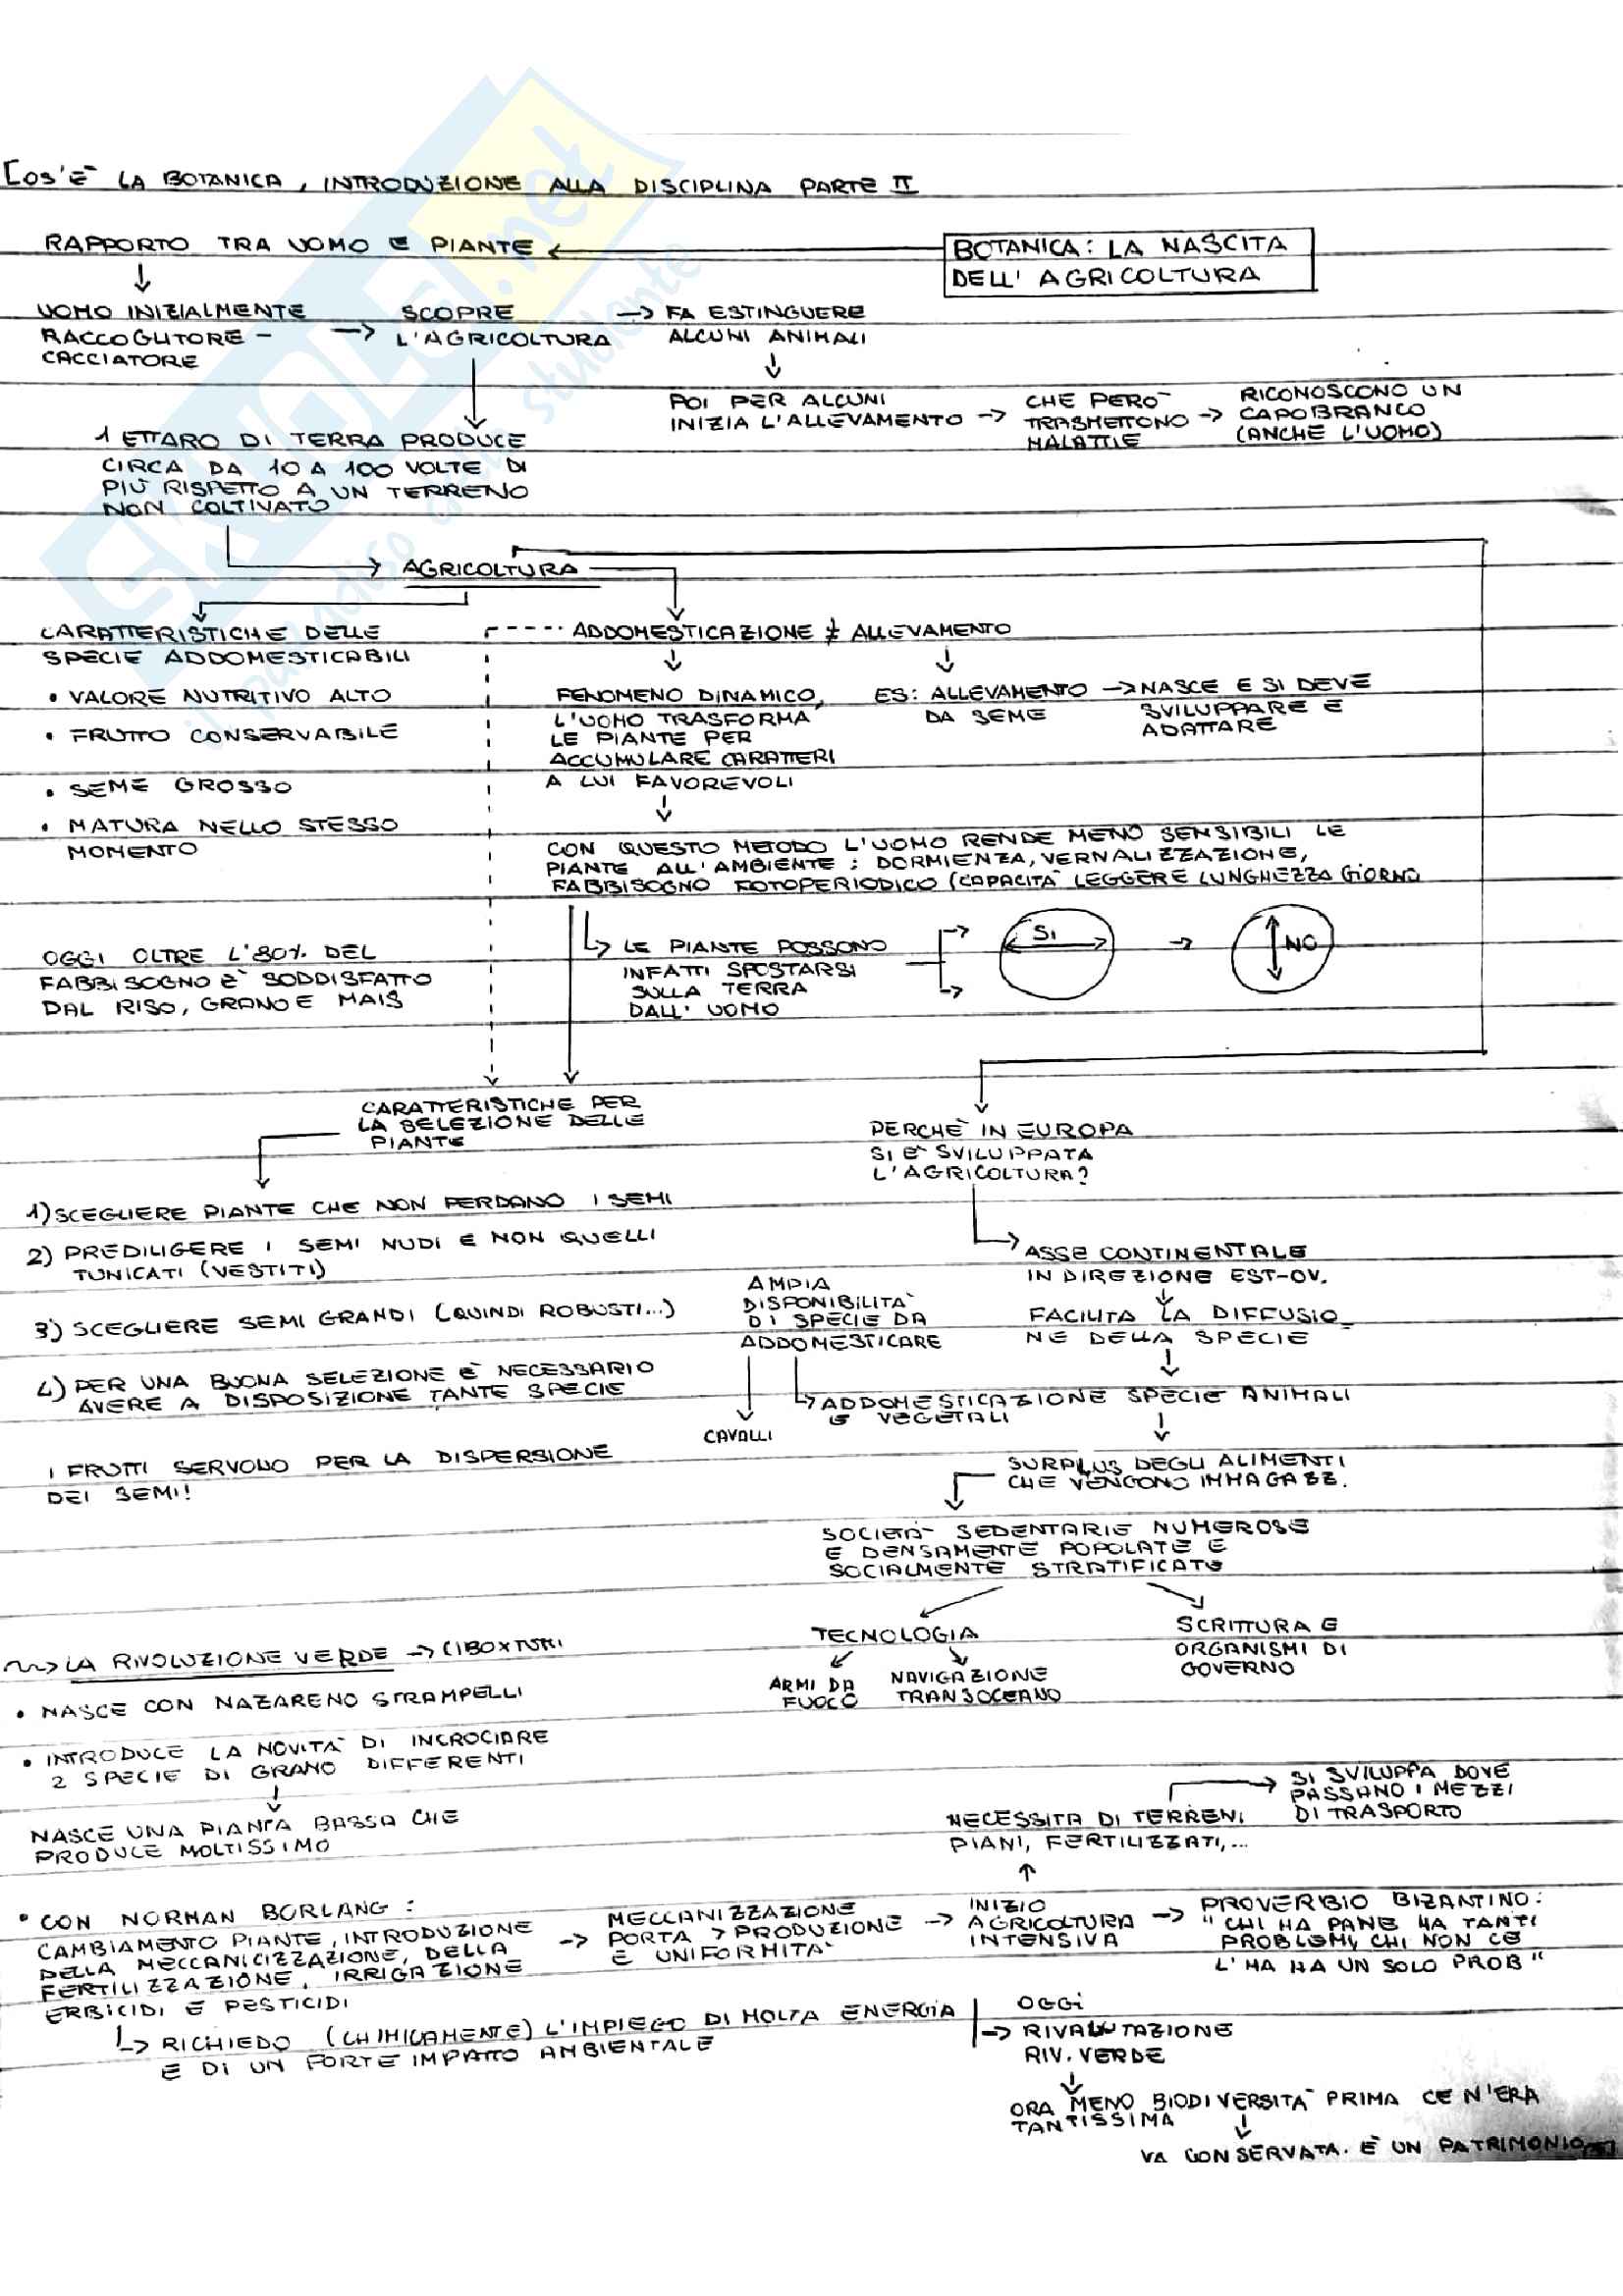 COS'È LA BOTANICA, INTRODUZIONE ALLA DISCIPLINA PARTE II
RAPPORTO TRA UOMO E PIANTE
BOTANICA: LA NASCITA
DELL'AGRICOLTURA
UOMO INIZIALMENTE
RACCOGLITORE -
CACCIATORE
SCOPRE
L'AGRICOLTURA
FA ESTINGUERE
ALCUNI ANIMALI
POI PER ALCUNI
INIZIA L'ALLEVAMENTO
CHE PERÒ
TRASMETTONO
MALATTIE
RICONOSCONO UN
CAPOBRANCO
(ANCHE L'UOMO)
1 ETTARO DI TERRA PRODUCE
CIRCA DA 10 A 100 VOLTE DI
PIÙ RISPETTO A UN TERRENO
NON COLTIVATO
AGRICOLTURA
CARATTERISTICHE DELLE
SPECIE ADDOMESTICABILI
• VALORE NUTRITIVO ALTO
• FRUTTO CONSERVABILE
• SEME GROSSO
• MATURA NELLO STESSO
MOMENTO
ADDOMESTICAZIONE ≠ ALLEVAMENTO
FENOMENO DINAMICO,
L'UOMO TRASFORMA
LE PIANTE PER
ACCUMULARE CARATTERI
A LUI FAVOREVOLI
ES: ALLEVAMENTO
DA SEME
NASCE E SI DEVE
SVILUPPARE E
ADATTARE
CON QUESTO METODO L'UOMO RENDE MENO SENSIBILI LE
PIANTE ALL'AMBIENTE: DORMIENZA, VERNALIZZAZIONE,
FABBISOGNO FOTOPERIODICO (CAPACITÀ LEGGERE LUNGHEZZA GIORNO
OGGI OLTRE L'80% DEL
FABBISOGNO È SODDISFATTO
DAL RISO, GRANO E MAIS
LE PIANTE POSSONO
INFATTI SPOSTARSI
SULLA TERRA
DALL'UOMO
SI
NO
CARATTERISTICHE PER
LA SELEZIONE DELLE
PIANTE
1) SCEGLIERE PIANTE CHE NON PERDANO I SEMI
2) PREDILIGERE I SEMI NUDI E NON QUELLI
TUNICATI (VESTITI)
3) SCEGLIERE SEMI GRANDI (QUINDI ROBUSTI...)
4) PER UNA BUONA SELEZIONE È NECESSARIO
AVERE A DISPOSIZIONE TANTE SPECIE
I FRUTTI SERVONO PER LA DISPERSIONE
DEI SEMI!
PERCHÈ IN EUROPA
SI È SVILUPPATA
L'AGRICOLTURA?
ASSE CONTINENTALE
IN DIREZIONE EST-OV.
FACILITA LA DIFFUSIO_
NE DELLA SPECIE
AMPIA
DISPONIBILITÀ
DI SPECIE DA
ADDOMESTICARE
CAVALLI
ADDOMESTICAZIONE SPECIE ANIMALI
E VEGETALI
SURPLUS DEGLI ALIMENTI
CHE VENGONO IMMAGAZZ.
SOCIETÀ SEDENTARIE NUMEROSE
E DENSAMENTE POPOLATE E
SOCIALMENTE STRATIFICATE
TECNOLOGIA
ARMI DA
FUOCO
NAVIGAZIONE
TRANSOCEANO
SCRITTURA E
ORGANISMI DI
GOVERNO
LA RIVOLUZIONE VERDE → CIBO X TUTTI
• NASCE CON NAZARENO STRAMPELLI
• INTRODUCE LA NOVITÀ DI INCROCIARE
2 SPECIE DI GRANO DIFFERENTI
NASCE UNA PIANTA BASSA CHE
PRODUCE MOLTISSIMO
• CON NORMAN BORLANG:
CAMBIAMENTO PIANTE, INTRODUZIONE
DELLA MECCANICIZZAZIONE, DELLA
FERTILIZZAZIONE, IRRIGAZIONE
ERBICIDI E PESTICIDI
MECCANIZZAZIONE
PORTA > PRODUZIONE
E UNIFORMITÀ
INIZIO
AGRICOLTURA
INTENSIVA
NECESSITA DI TERRENI
PIANI, FERTILIZZATI,...
SI SVILUPPA DOVE
PASSANO I MEZZI
DI TRASPORTO
PROVERBIO BIZANTINO:
"CHI HA PANE HA TANTI
PROBLEMI, CHI NON CE
L'HA HA UN SOLO PROB"
RICHIEDO (CHIMICAMENTE) L'IMPIEGO DI MOLTA ENERGIA
E DI UN FORTE IMPATTO AMBIENTALE
OGGI
RIVALUTAZIONE
RIV. VERDE
ORA MENO BIODIVERSITÀ PRIMA CE N'ERA
TANTISSIMA
VA CONSERVATA. È UN PATRIMONIO
SKUOLA.net
il paradiso dello studente